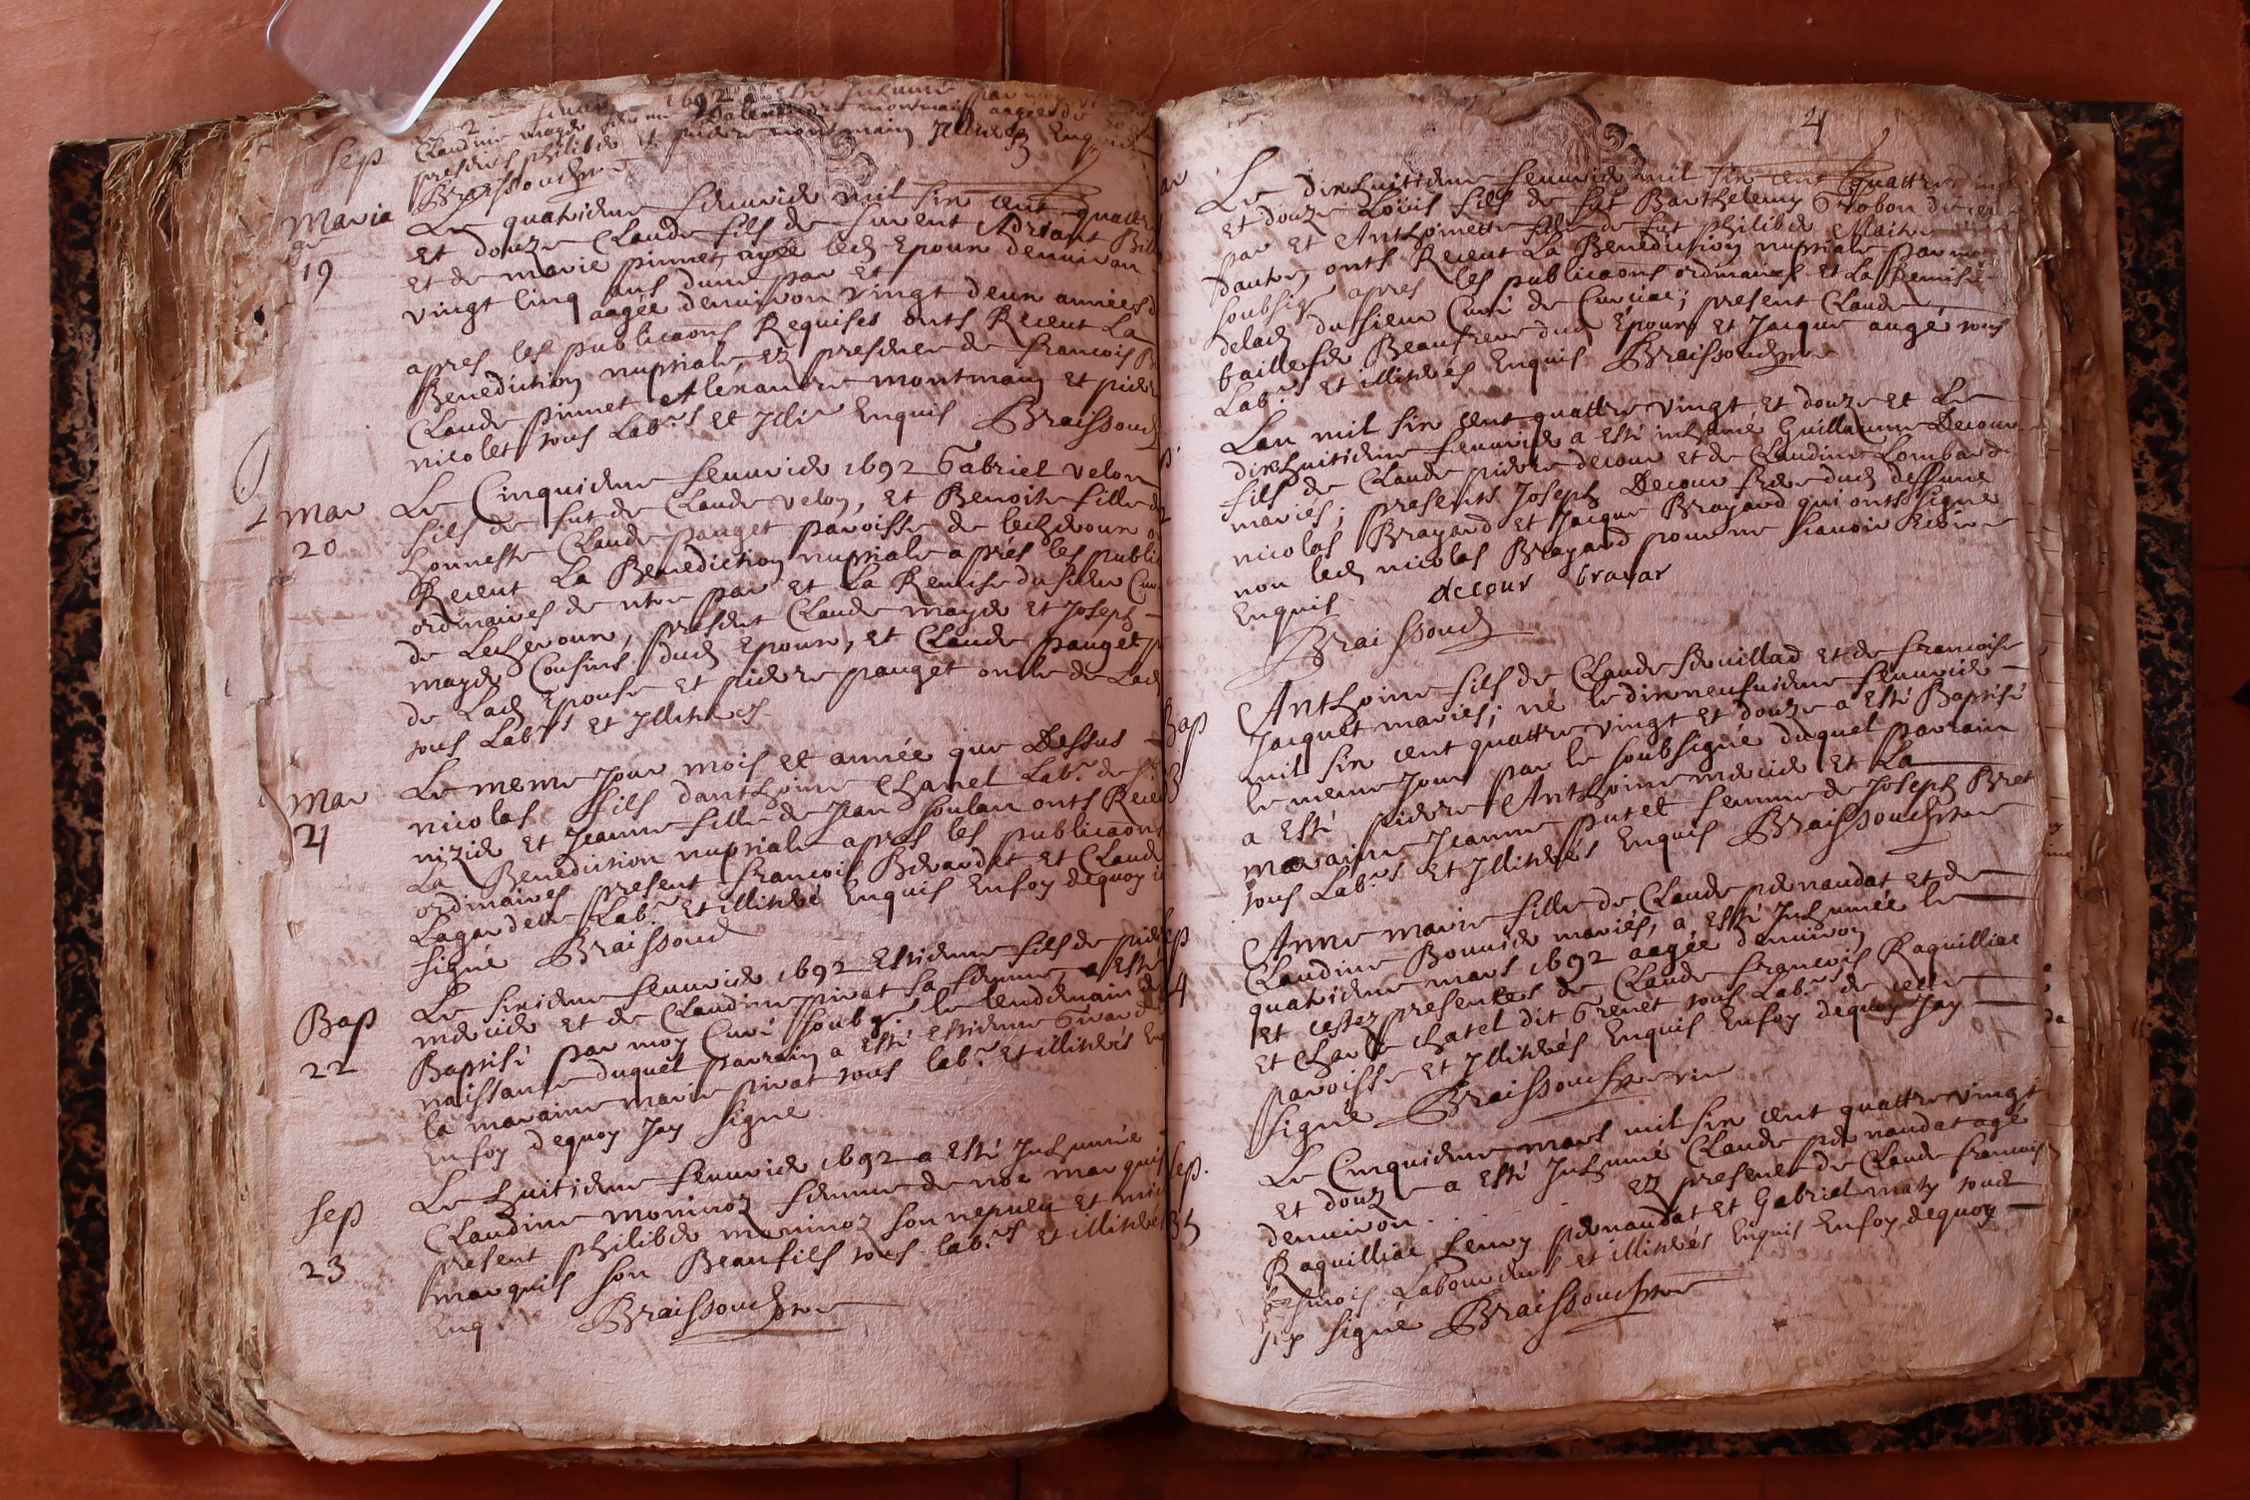 Sep
Claudine mayde
presents philibde et pidere montmain Illitérés Enquis
Braissoud ptre
Maria
ge
19
Le quatrieme feuuride mil six cent quattre
et douze Claude fils de Adriant
et de marie pinnet agé led Epoux denuiron
vingt cinq ans dune par et
aagée denuiron vingt deux années
apres les publicaons Requises onts Receut La
Benediction nuptiale, Ez presence de francois
Claude pinnet Alexandre montmain et pide
nicolet tous Lab.rs et Illi Enquis Braissoud
Mar
20
Le Cinquideme feuuride 1692 Gabriel velon
fils de fut de Claude velon, et Benoite fille de
honneste Claude pauget paroisse de lescheroux
Receut La Benediction nuptiale aprés les publi
ordinaires de ntre par et La Remise du sieur Cur
de Lescheroux, present Claude mayde et Joseph
mayde Cousins dud Epoux, et Claude pauget
de Lad Epouse et pidere pauget oncle de Lad
tous Lab.rs et Illitérés
Mar
21
Le meme Jour mois et année que Dessus
nicolas fils danthoine Chanel Lab.r de S
nizide et Jeanne fille de Jean soulan onts Rece
La Benediction nuptiale apres les publicaons
ordinaires present francois Berardet et Claude
Lagardette Lab.rs et illitéré Enquis Enfoy dequoy
signé Braissoud
Bap
22
Le sixideme feuuride 1692 Estideme fils de pide
mercide et de Claudine pirat sa femme a Esté
Baptisé par moy Curé soubsgé le lendemain de
naissance duquel parrain a Esté estideme Girard
la maraine marie pirat tous lab.rs et illitérés Enq
Enfoy dequoy Jay signe
Sep
23
Le huitideme feuuride 1692 a Esté Inhumée
Claudine moninoz femme de noe marquis
present philibde moninoz son nepueu et
marquis son Beaufils tous lab.rs et illitérés
Enq Braissoud ptre
21
Le dixhuitideme feuuride mil six cent quattre
et douze Loüis fils de fut Barthelemy Grobon de
par et Anthoinette fille de fut philibde Maitre
dautre, onts Receut La Benediction nuptiale par moy
soubsigé apres les publicaons ordinaires et La Remise
delad du sieur Curé de Curciac; present Claude
baillefde Beaufrere dud Epoux et Jacque augé tous
Lab.rs et illitérés Enquis Braissoud ptre
Lan mil six cent quattre vingt et douze et Le
dixhuitideme feuuride a Esté inhumé Guillaume Decour
fils de Claude pidere decour et de Claudine Lombard
mariés; presents Joseph Decour frere dud deffunt
nicolas Brayard et Jacque Brayard qui onts signe
non led nicolas Brayard pour ne scauoir Ecrire
Enquis decour bravar
Braissoud
Bap
Anthoine fils de Claude feuillad et de francoise
Jacquet mariés; né le dixneufuideme feuuride
mil six cent quattre vingt et douze a Esté Baptisé
le meme Jour par le soubsigné duquel parrain
a Esté pidere Anthoine mercide et La
maraine Jeanne putet femme de Joseph Bret
tous Lab.rs et Illitérés Enquis Braissoud ptre
Sep
4
Anne marie fille de Claude pernaudat et de
Claudine Bonuide mariés, a Esté Inhumée le
quatrideme mars 1692 aagée denuiron
et cestez presentes de Claude francois Raquilliac
et Charle chatel dit Grenet tous Lab.rs de cette
paroisse et Illitérés Enquis Enfoy dequoy Jay
signe Braissoud ptre
Sep.
Le Cinquideme mars mil six cent quattre vingt
et douze a Esté Inhumé Claude pernaudat agé
denuiron . . . . Ez presence de Claude francois
Raquilliac henry pernaudat et Gabriel maty tous de
besmois Laboureurs et illitérés Enquis Enfoy dequoy
signé Braissoud ptre